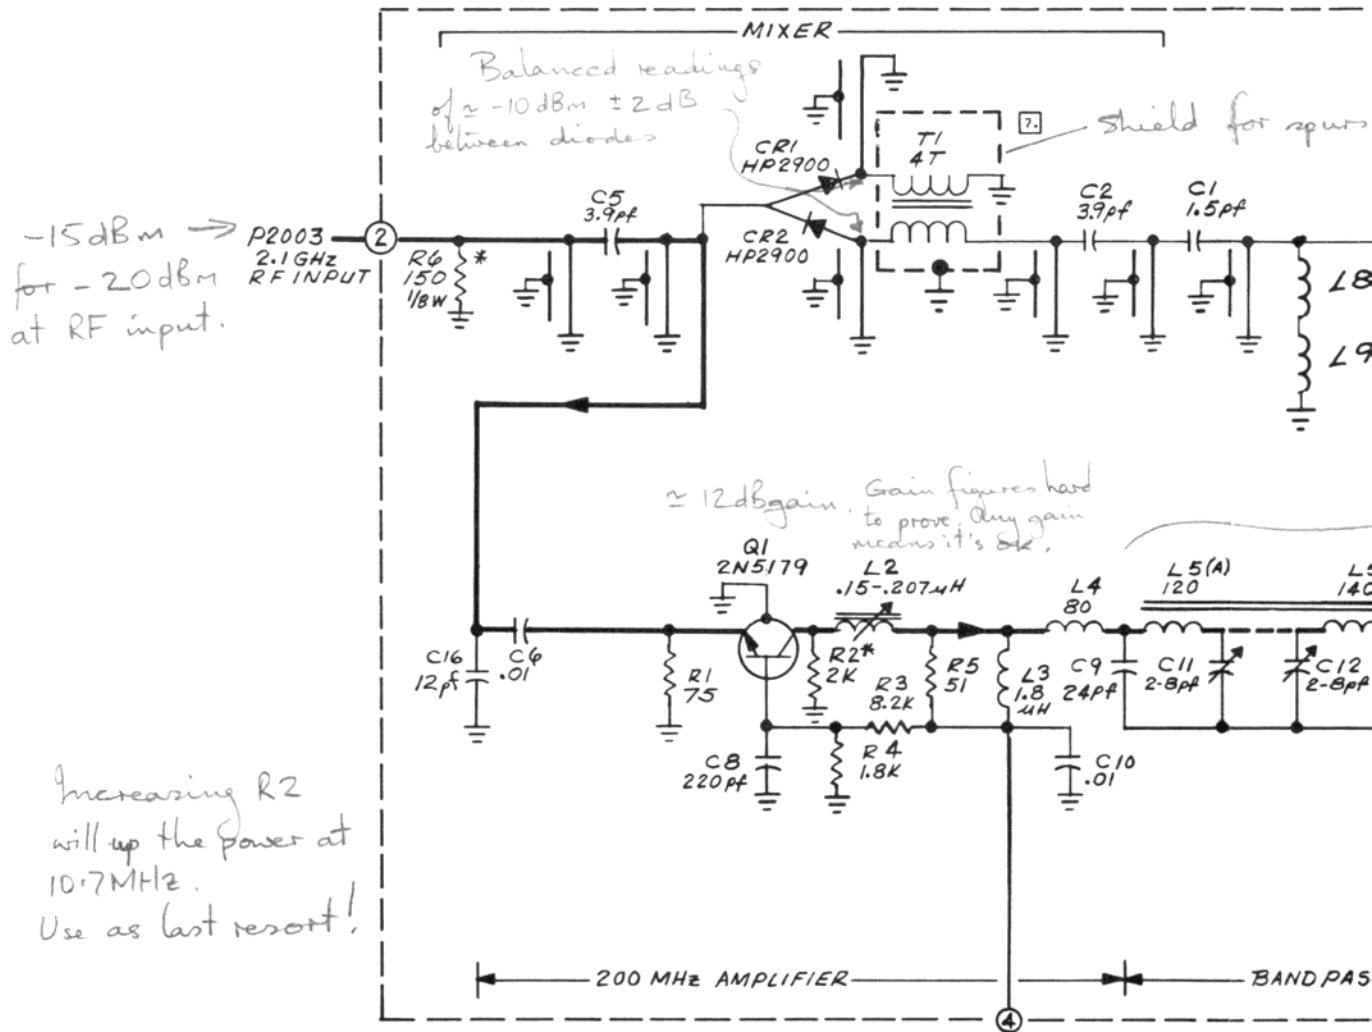 MIXER
Balanced readings
of ≃ -10 dBm ± 2 dB
between diodes
CR1
HP2900
T1
4T
7.
Shield for spurs
C5
3.9pf
C2
3.9pf
C1
1.5pf
-15 dBm →
for -20dBm
at RF input.
P2003
2.1 GHz
RF INPUT
2
R6 *
150
1/8W
CR2
HP2900
L8
L9
≃ 12 dB gain. Gain figures hard
to prove. Any gain
means it's ok.
Q1
2N5179
L2
.15-.207µH
L4
80
L5(A)
120
L5
140
C16
12pf
C6
.01
R1
75
R2*
2K
R3
8.2K
R5
51
L3
1.8
µH
C9
24pf
C11
2-8pf
C12
2-8pf
C8
220pf
R4
1.8K
C10
.01
Increasing R2
will up the power at
10.7MHz.
Use as last resort!
200 MHz AMPLIFIER
BAND PAS
4